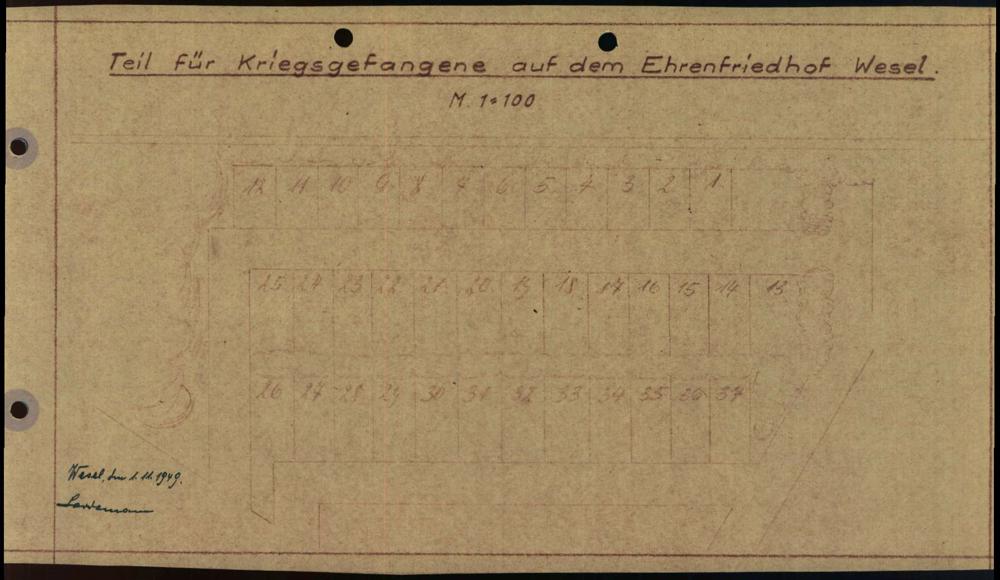 Teil für Kriegsgefangene auf dem Ehrenfriedhof Wesel.
M. 1=100
12 11 10 9 8 7 6 5 4 3 2 1
25 24 23 22 21 20 19 18 17 16 15 14 13
26 27 28 29 30 31 32 33 34 35 36 37
Wesel, den 1.11.1949.